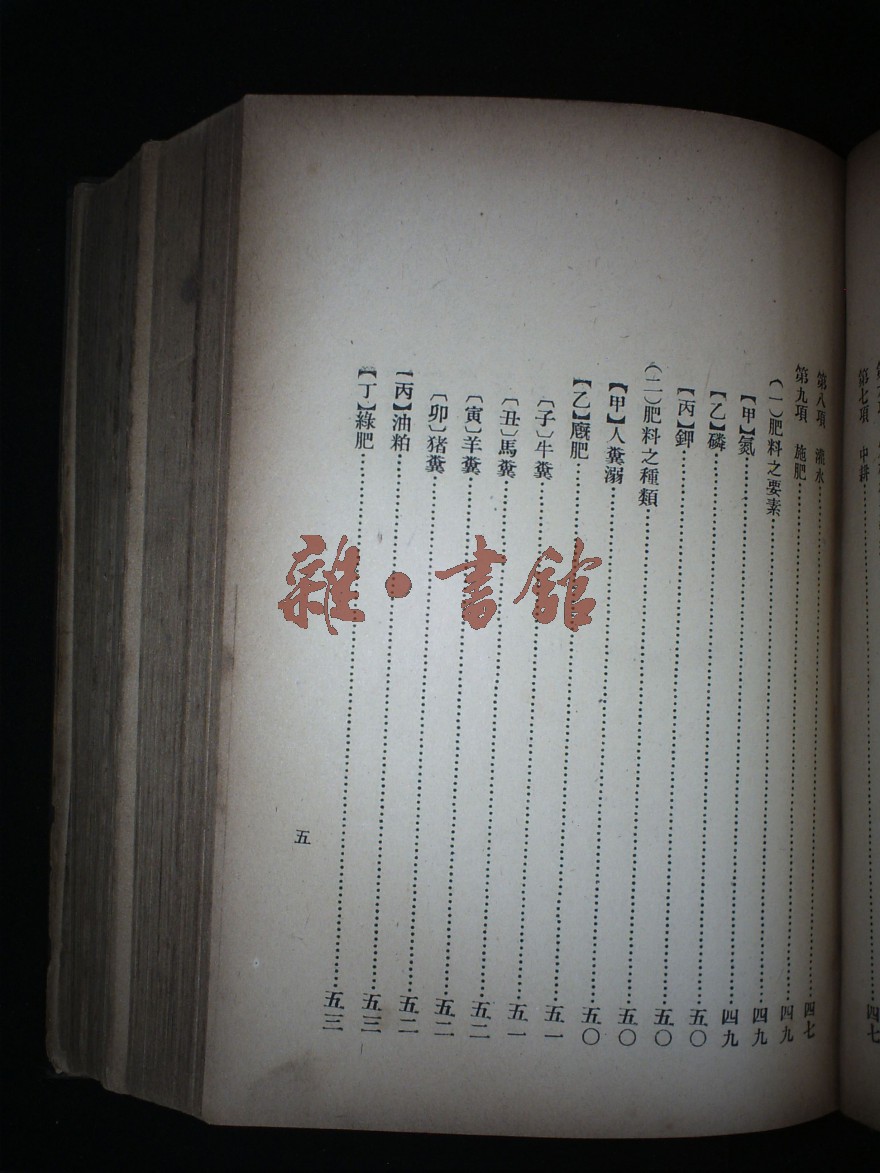 第七項　中耕……四七
第八項　灌水……四七
第九項　施肥……四九
(一)肥料之要素……四九
【甲】氮……四九
【乙】磷……五〇
【丙】鉀……五〇
(二)肥料之種類……五〇
【甲】人糞溺……五〇
【乙】廐肥……五一
〔子〕牛糞……五一
〔丑〕馬糞……五二
〔寅〕羊糞……五二
〔卯〕猪糞……五二
【丙】油粕……五三
【丁】綠肥……五三
五
雜·書館